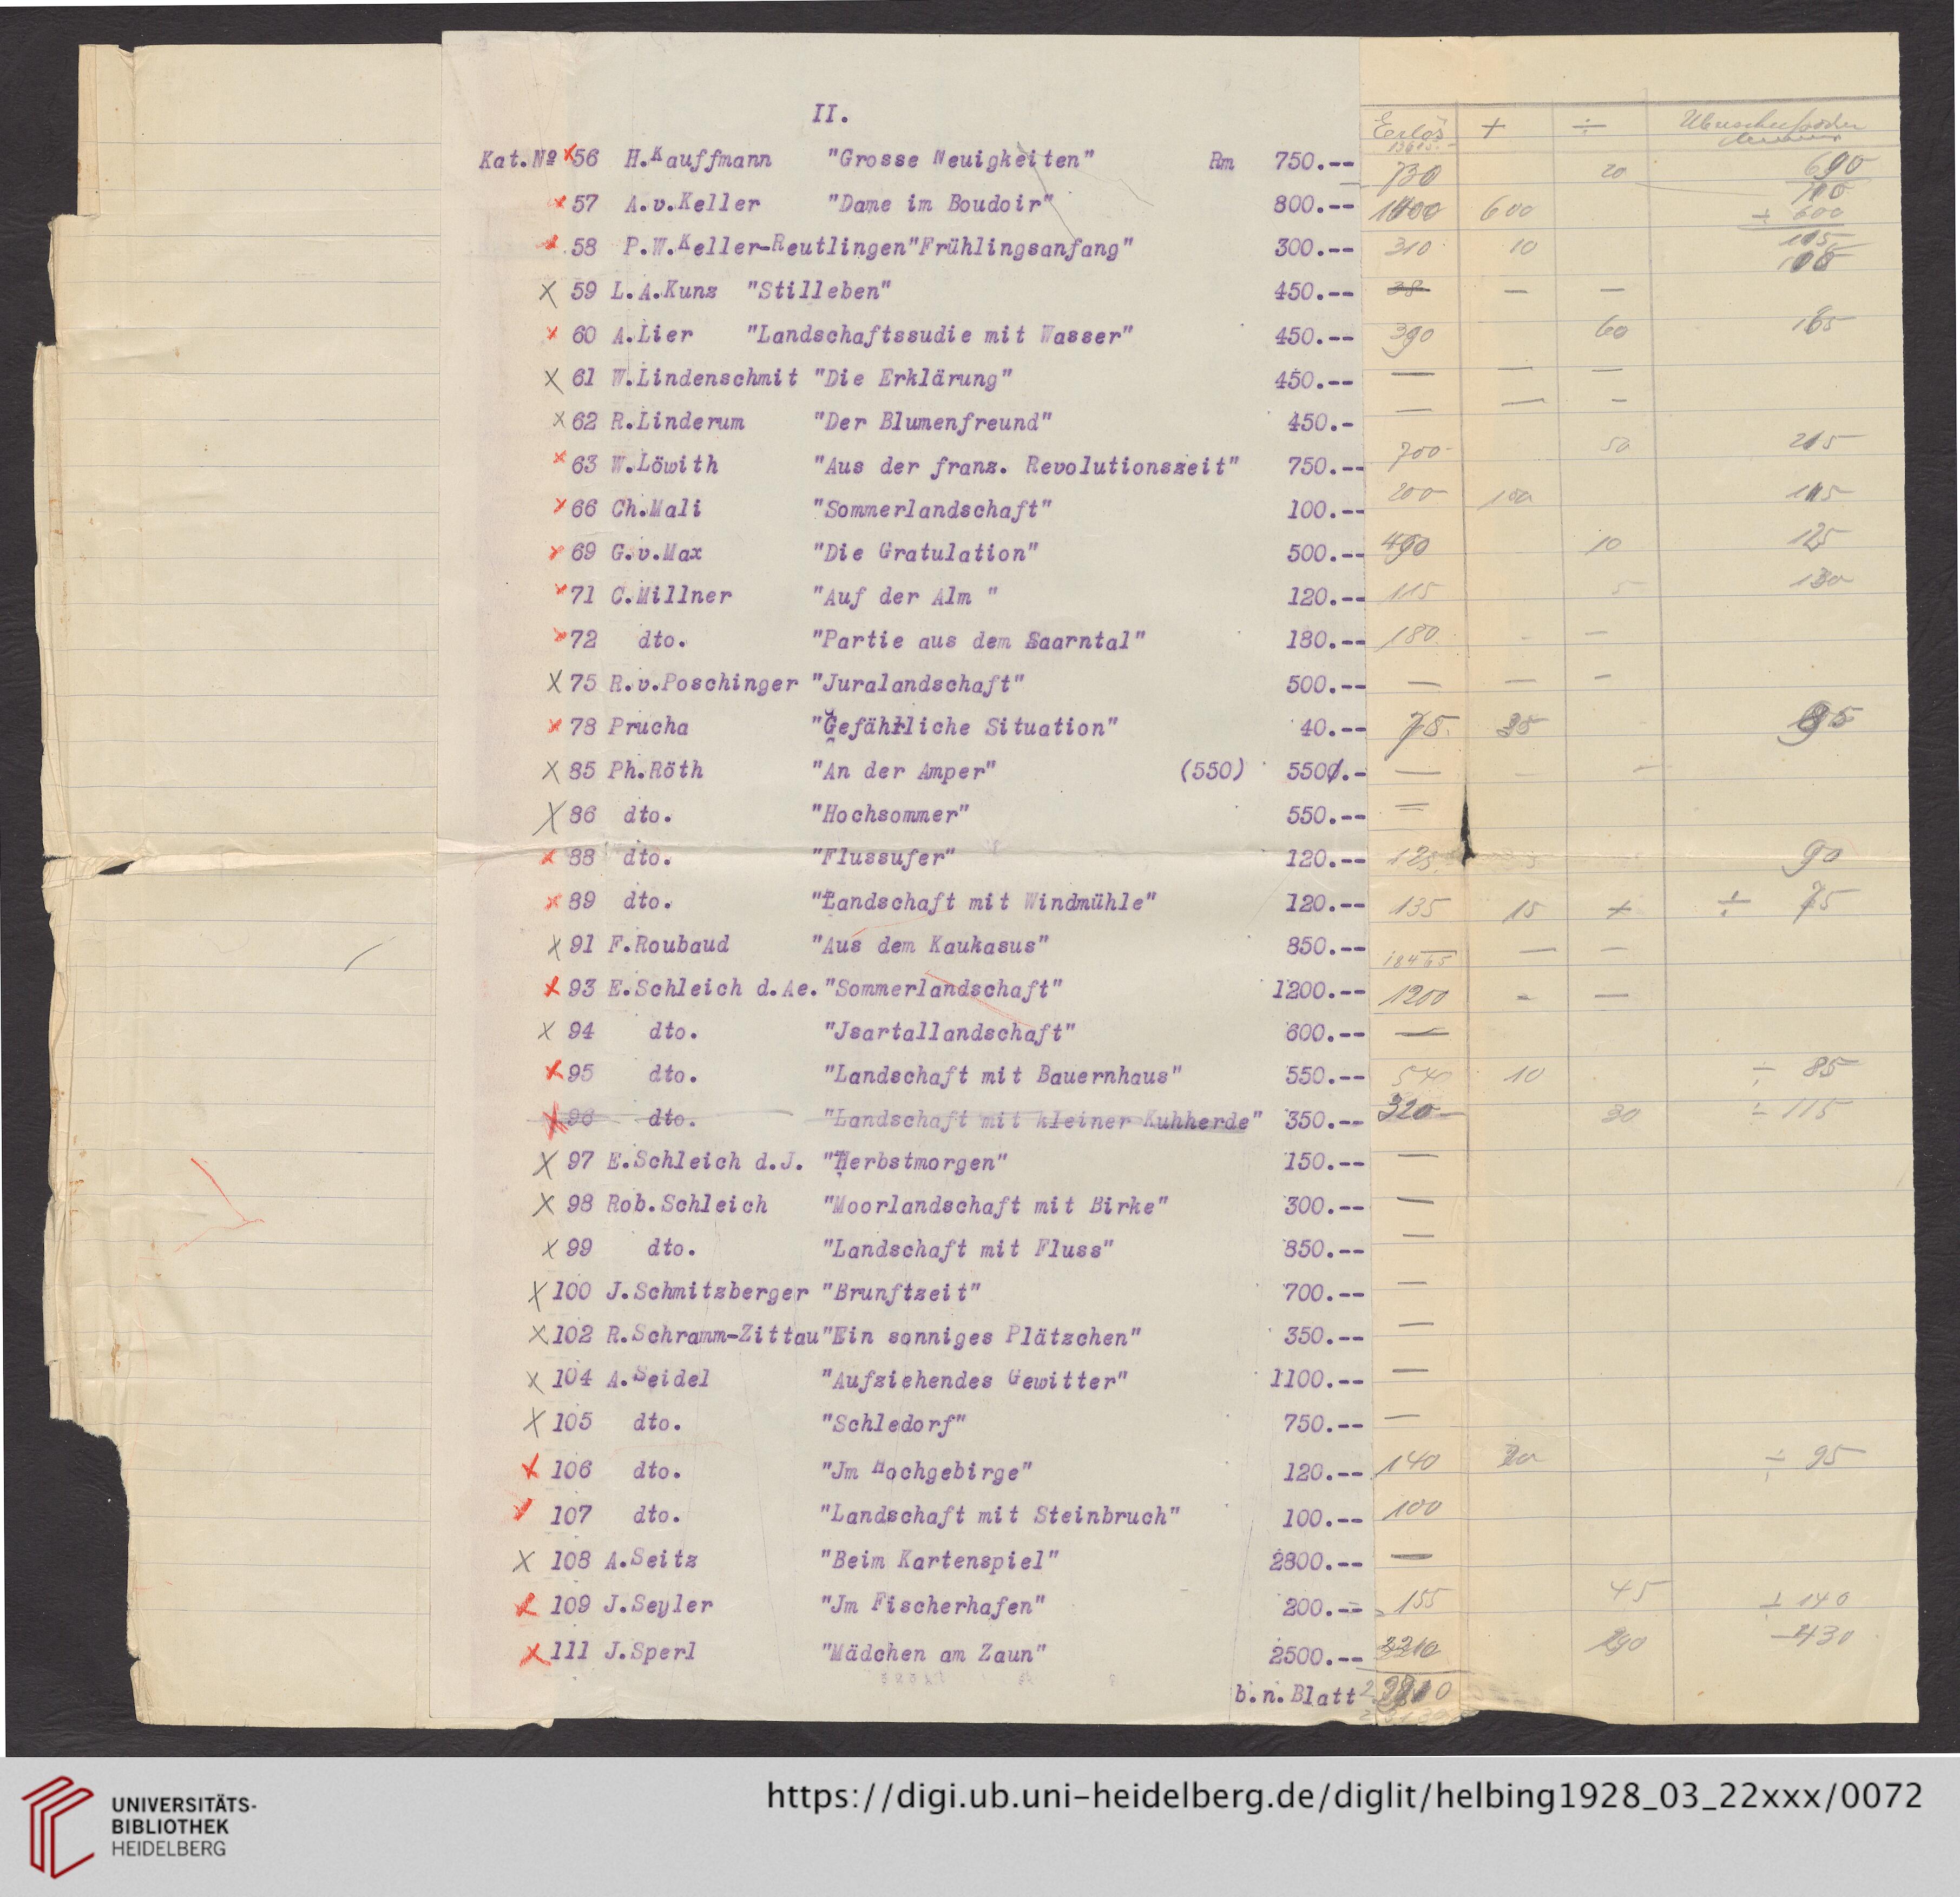 II.
Erlös + ÷
Kat.Nº X 56 H.Kauffmann "Grosse Neuigkeiten" Rm 750.-- 730 20 690
x 57 A.v.Keller "Dame im Boudoir" 800.-- 1400 600 + 600
x 58 P.W.Keller-Reutlingen"Frühlingsanfang" 300.-- 310 10
X 59 L.A.Kunz "Stilleben" 450.-- — —
x 60 A.Lier "Landschaftssudie mit Wasser" 450.-- 390 60 165
X 61 W.Lindenschmit "Die Erklärung" 450.-- — — —
x 62 R.Linderum "Der Blumenfreund" 450.- — — -
x 63 W.Löwith "Aus der franz. Revolutionszeit" 750.-- 700 50 215
x 66 Ch.Mali "Sommerlandschaft" 100.-- 200 100 115
x 69 G.v.Max "Die Gratulation" 500.-- 490 10 125
x 71 C.Millner "Auf der Alm " 120.-- 115 5 130
x 72 dto. "Partie aus dem Saarntal" 180.-- 180 - —
X 75 R.v.Poschinger "Juralandschaft" 500.-- — — —
x 78 Prucha "Gefährliche Situation" 40.-- 75. 35 95
X 85 Ph.Röth "An der Amper" (550) 550.- — — —
X 86 dto. "Hochsommer" 550.-- —
x 88 dto. "Flussufer" 120.-- 125. 5 90
x 89 dto. "Landschaft mit Windmühle" 120.-- 135 15 + ÷ 75
x 91 F.Roubaud "Aus dem Kaukasus" 850.-- 18465 — —
x 93 E.Schleich d.Ae."Sommerlandschaft" 1200.-- 1200 - —
x 94 dto. "Jsartallandschaft" 600.-- —
x 95 dto. "Landschaft mit Bauernhaus" 550.-- 540 10 ÷ 85
x 96 dto. "Landschaft mit kleiner Kuhherde" 350.-- 320 30 ÷ 115
X 97 E.Schleich d.J. "Herbstmorgen" 150.-- —
X 98 Rob.Schleich "Moorlandschaft mit Birke" 300.-- —
x 99 dto. "Landschaft mit Fluss" 850.-- —
X 100 J.Schmitzberger "Brunftzeit" 700.-- —
X 102 R.Schramm-Zittau"Ein sonniges Plätzchen" 350.-- —
x 104 A.Seidel "Aufziehendes Gewitter" 1100.-- —
X 105 dto. "Schledorf" 750.-- —
x 106 dto. "Jm Hochgebirge" 120.-- 140 20 ÷ 95
x 107 dto. "Landschaft mit Steinbruch" 100.-- 100
X 108 A.Seitz "Beim Kartenspiel" 2800.-- —
x 109 J.Seyler "Jm Fischerhafen" 200.-- 155 45 ÷ 140
x 111 J.Sperl "Mädchen am Zaun" 2500.-- 2210 290 — 430
b.n.Blatt
UNIVERSITÄTS-
BIBLIOTHEK
HEIDELBERG
https://digi.ub.uni-heidelberg.de/diglit/helbing1928_03_22xxx/0072